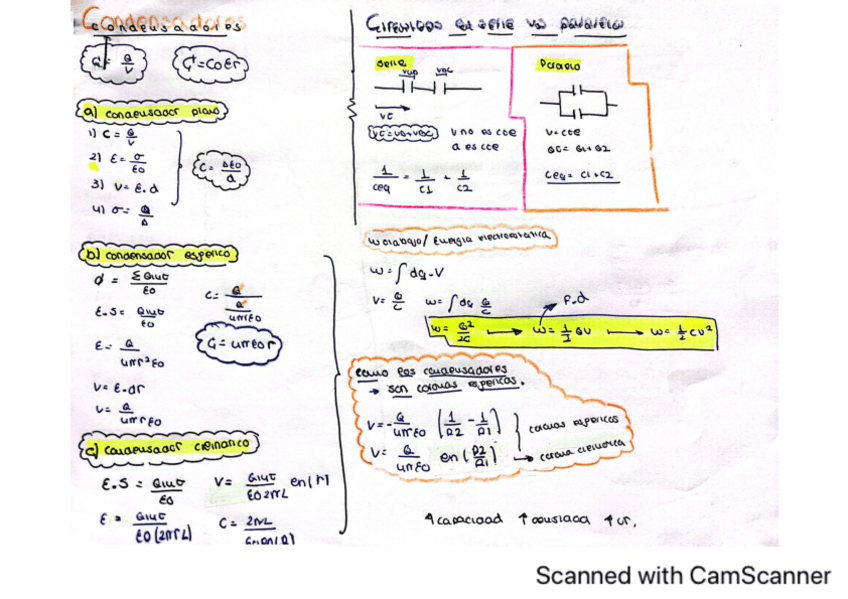 Condensadores
condensadores
C = Q/V
C = C0 εr
a) condensador plano
1) C = Q/V
2) E = σ/ε0
3) V = E · d
4) σ = Q/A
C = Aε0/d
b) condensador esferico
Φ = ΣQint/ε0
E · S = Qint/ε0
E = Q/4πr²ε0
V = E · dr
V = Q/4πrε0
C = Q/(Q/4πrε0)
C = 4πε0r
c) condensador cilindrico
E · S = Qint/ε0
E = Qint/ε0(2πrL)
V = Qint/ε0 2πL
C = 2πL
Circuitos en serie vs paralelo
serie
1/Ceq = 1/C1 + 1/C2
V no es cte
Q es cte
Paralelo
V = cte
QC = Q1 + Q2
Ceq = C1 + C2
W trabajo / Energia electrostatica
W = ∫ dq · V
V = Q/C
W = ∫ dq Q/C
P.d
W = Q²/2C → W = 1/2 QV → W = 1/2 CV²
como los condensadores
→ son coronas esfericas.
V = - Q/4πε0 [1/R2 - 1/R1]
coronas esfericos
V = Q/4πε0 ln(R2/R1)
→ corona cilindrica
↑ capacidad ↑ distancia
Scanned with CamScanner